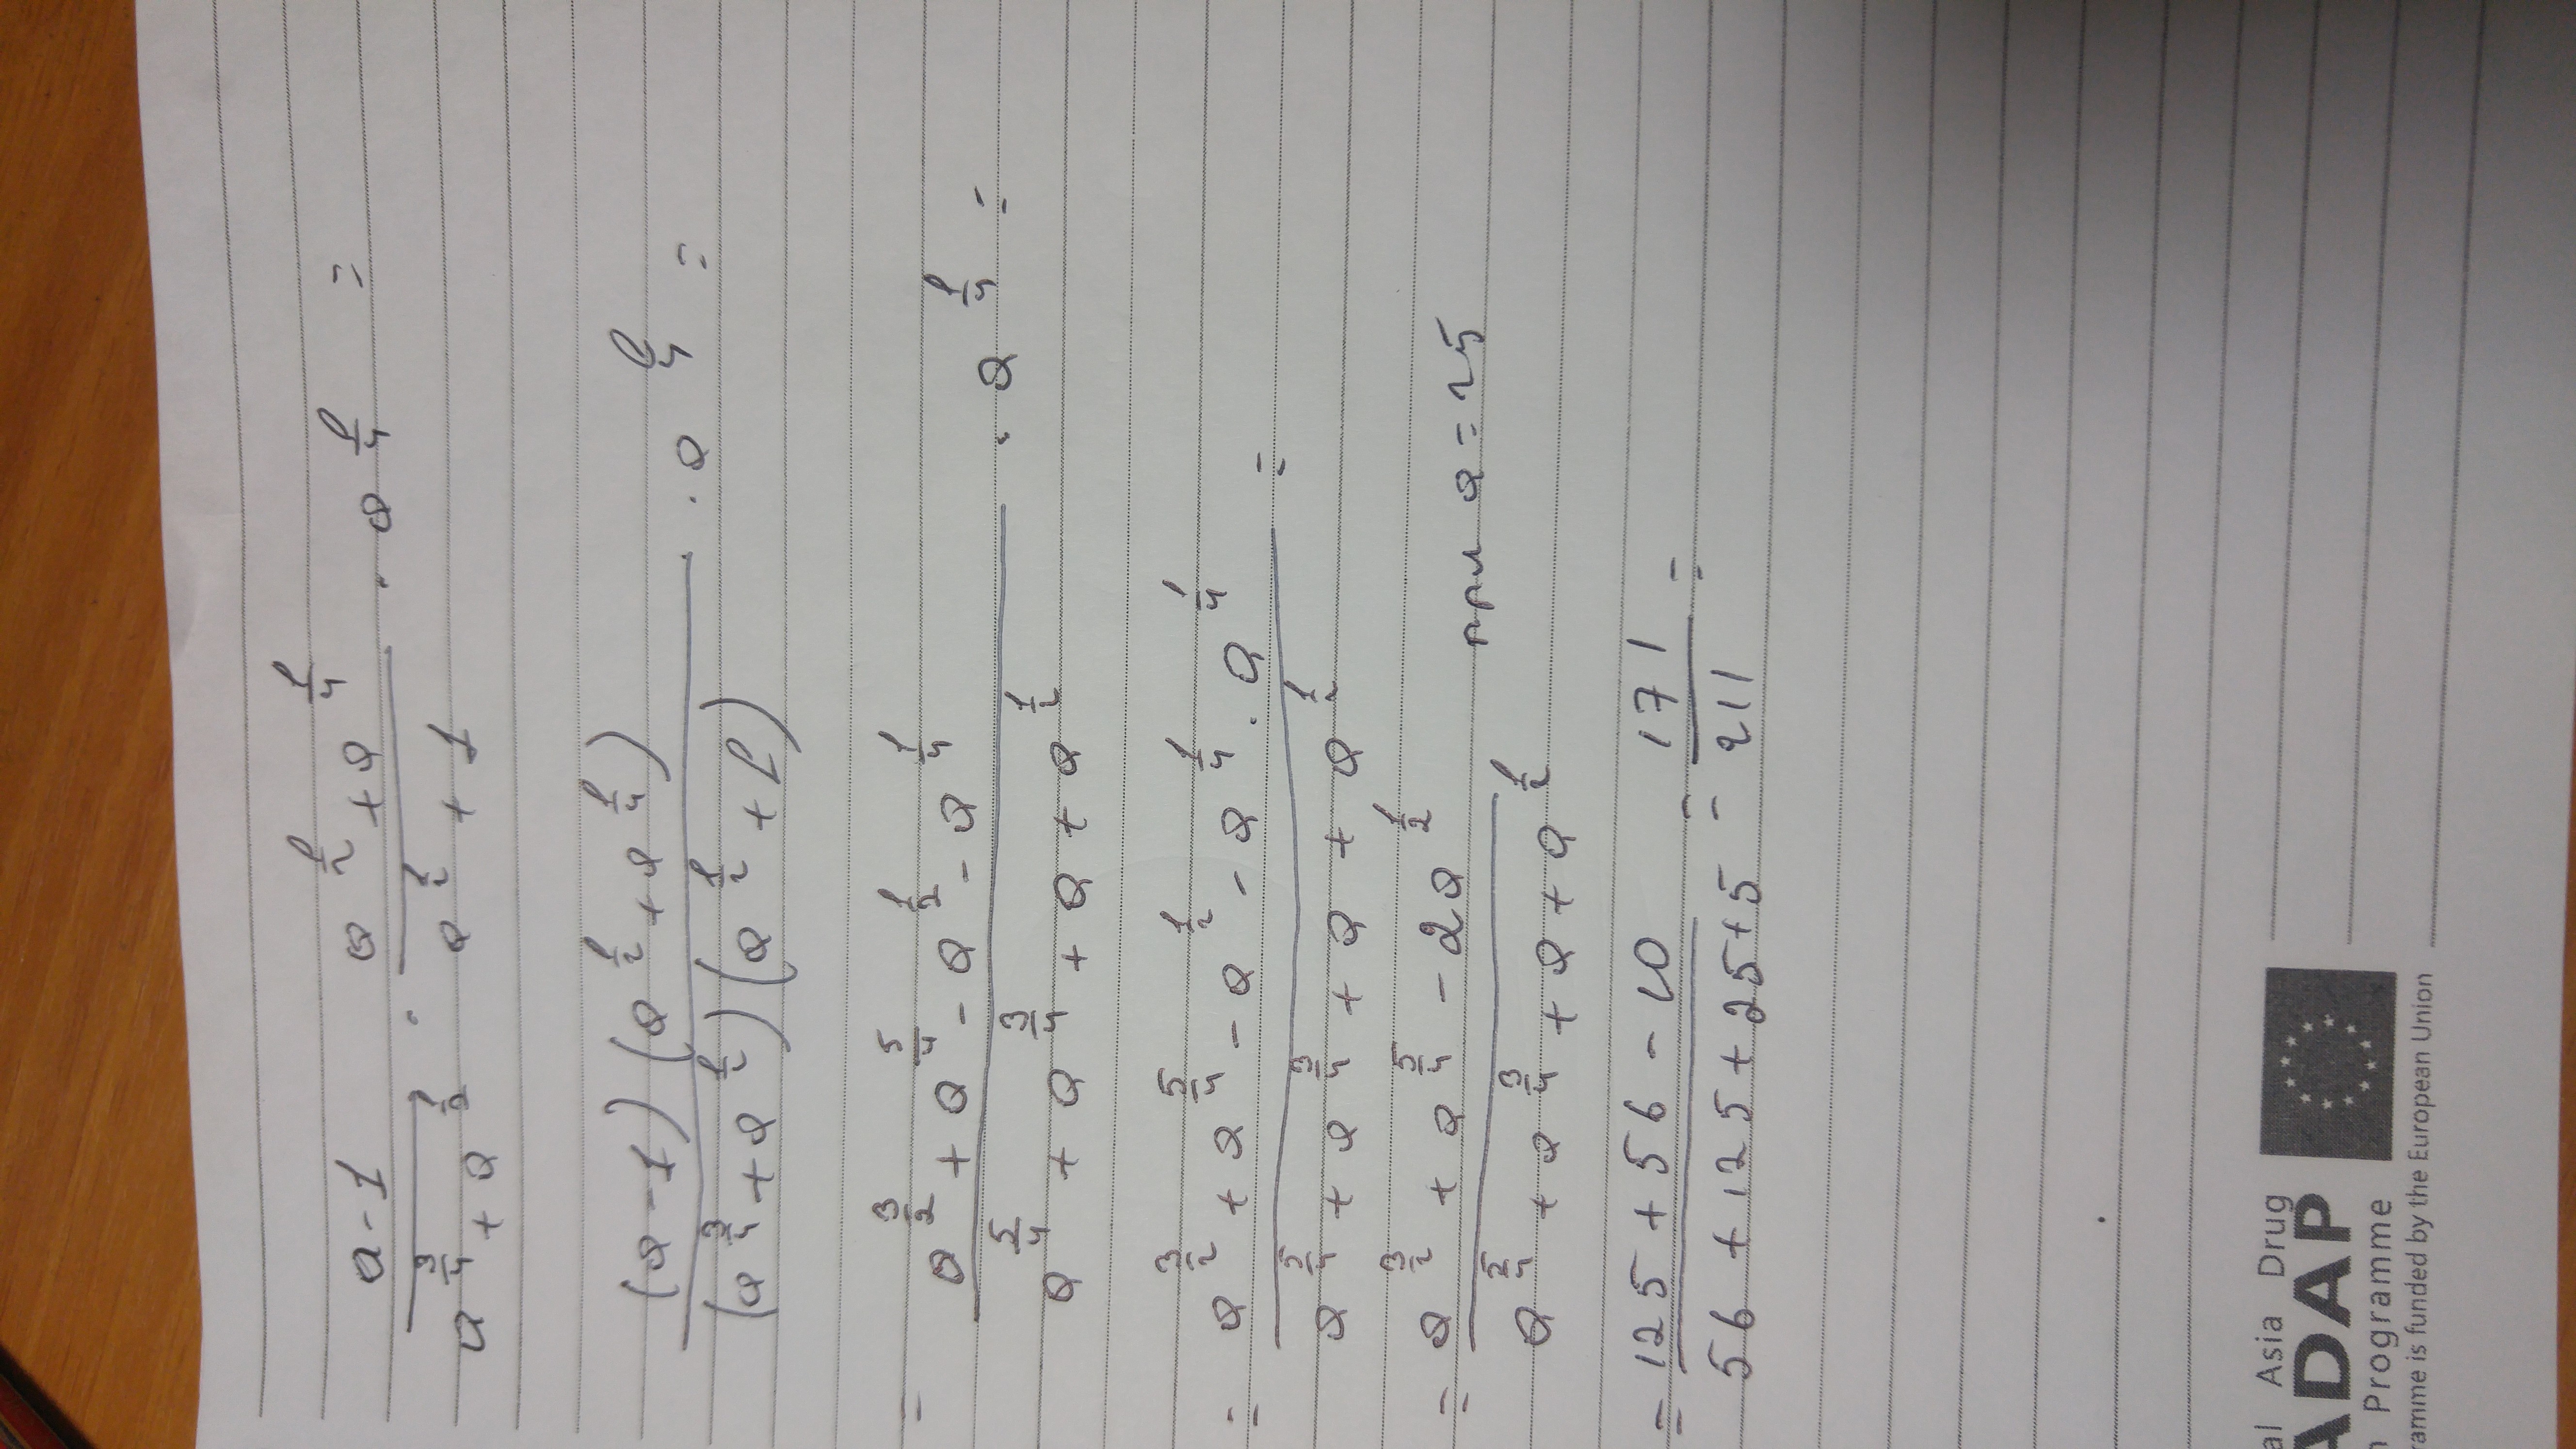 a-1 / a^3/4 + a^1/2 · a^1/2 + a^1/4 / a^1/2 + 1 · a^1/4 =
(a-1)(a^1/2 + a^1/4) / (a^3/4 + a^1/2)(a^1/2 + 1) · a^1/4 =
= a^3/2 + a^5/4 - a^1/2 - a^1/4 / a^5/4 + a^3/4 + a + a^1/2 · a^1/4 =
= a^3/2 + a^5/4 - a^1/2 - a^1/4 · a^1/4 / a^5/4 + a^3/4 + a + a^1/2 =
= a^3/2 + a^5/4 - 2a^1/2 / a^5/4 + a^3/4 + a + a^1/2 при a = 25
= 125 + 56 - 10 / 56 + 125 + 25 + 5 = 171 / 211 =
al Asia Drug
ADAP
n Programme
amme is funded by the European Union